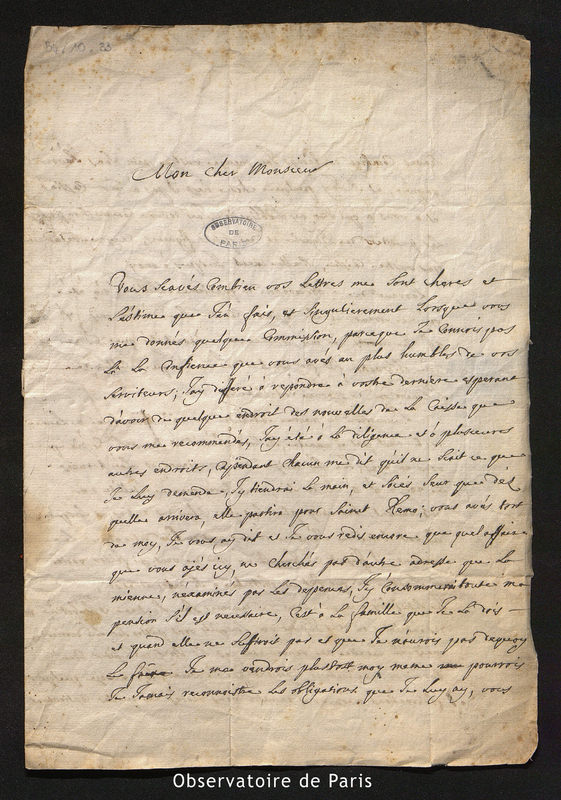 B4. 10. 23
Mon cher Monsieur
OBSERVATOIRE
DE
PARIS
Vous scavés combien vos lettres me sont cheres et
l'estime que J'en fais, et singulierement lorsque vous
me donnes quelque commission, parceque Je connois par
la la confience que vous avés au plus humble de vos
serviteurs, J'ay differé a repondre a vostre derniere esperant
d'avoir de quelque endroit des nouvelles de la Caisse que
vous me recommendés, J'ay été a la diligence et a plusieures
autres endroits, cependant chacun me dit qu'il ne scait ce que
Je luy demende, J'y tiendrai la main, et soiés seur que dés
quelle arrivera, elle partira pour Sainct Remo, vous avés tort
de moy, Je vous ay dit et Je vous redis encore que quel affaire
que vous ajés icy, ne cherchés pas d'autre adresse que la
mienne, n'examinés pas les despences, J'y consommerois toute ma
pension s'il est necessaire, c'est a la famille que Je la dois
et quand elle ne suffiroit pas et que Je n'aurois pas dequoy
le faire Je me vendrois plustost moy meme pourrois
Je Jamais reconnoistre les obligations que Je luy ay, vous
Observatoire de Paris